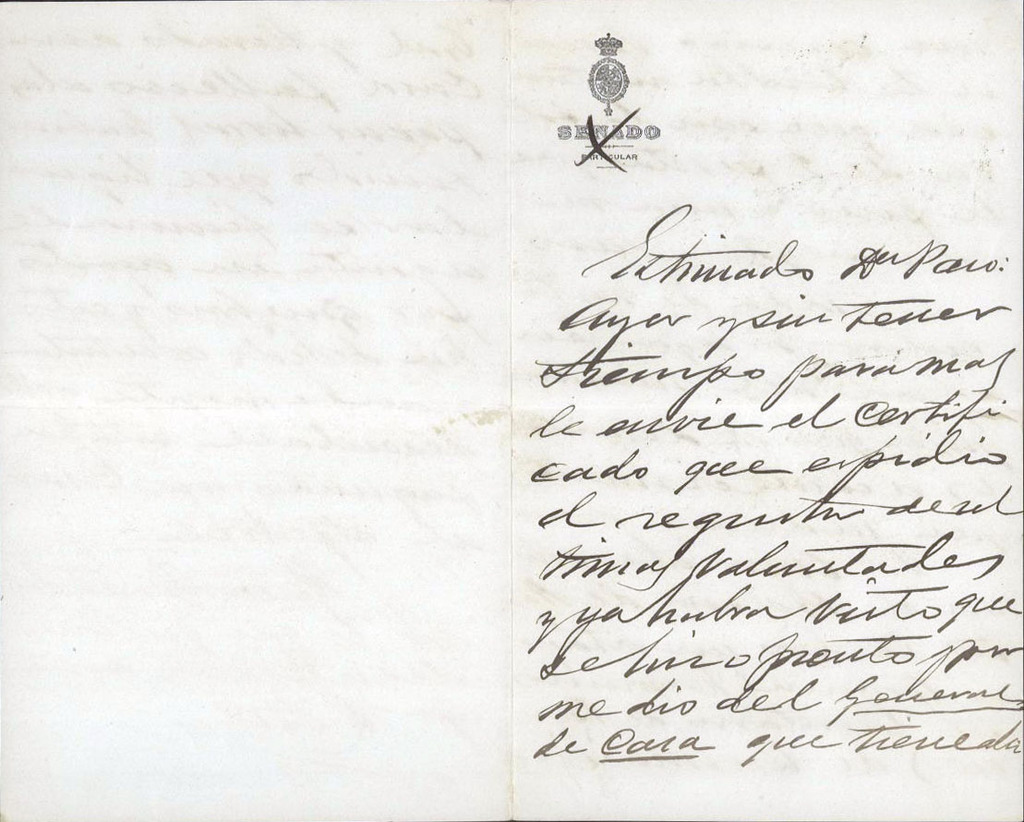 SENADO
PARTICULAR
Estimado Dn Paco:
Ayer y sin tener
tiempo para mas
le envie el certifi
cado que espidio
el registro de ul
timas voluntades
y ya habra visto que
se hizo pronto por
medio del General
de Casa que tiene